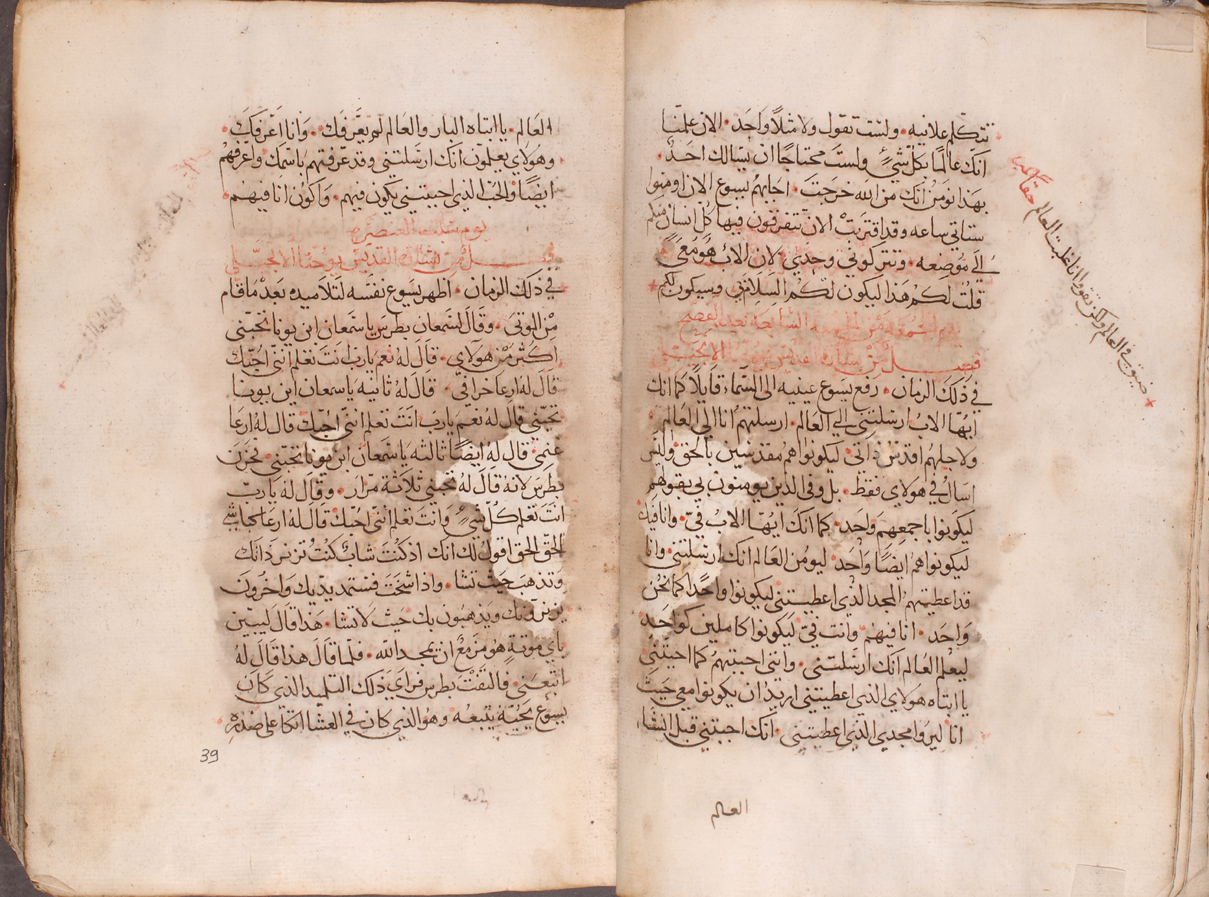 تتكلم علانيه ولست تقول ولا مثلاً واحد الان علمنا
انك عالماً بكل شيءٍ ولست محتاجا ان يسالك احد
بهذا نومن انك من الله خرجت اجابهم يسوع الان اومنوا
ستاتي ساعه وقد اقتربت الان تتفرقون فيها كل انسان منكم
الى موضعه وتتركوني وحدي لان الاب هو معي
قلت لكم هذا ليكون لكم السلام في وسيكون لكم
ضيق في العالم ولكن ثقوا وانا غلبت العالم حقا
يوم الجمعه من الجمعه السابعة بعد الفصح
فصل من بشارة القديس يوحنا الانجيلي
في ذلك الزمان رفع يسوع عينيه الى السماء قايلاً كما انك
ايها الاب ارسلتني الي العالم ارسلتهم انا الي العالم
ولاجلهم اقدس ذاتي ليكونوا هم مقدسين بالحق وليس
اسال في هولاي فقط بل وفي الذين يومنون بي بقولهم
ليكونوا باجمعهم واحد كما انك ايها الاب في وانا فيك
ليكونوا هم ايضاً واحد ليومن العالم انك ارسلتني وانا
قد اعطيتهم المجد الذي اعطيتني ليكونوا واحداً كما نحن
واحد انا فيهم وانت في ليكونوا كاملين كواحد
ليعلم العالم انك ارسلتني وانني احببتهم كما احببتني
يا ابتاه هولاي الذي اعطيتني اريد ان يكونوا معي حيث
انا ليروا مجدي الذي اعطيتني انك احببتني قبل انشا
العالم
العالم يا ابتاه البار والعالم لم يعرفك وانا اعرفك
وهولاي يعلمون انك ارسلتني وقد عرفتهم باسمك واعرفهم
ايضاً والحب الذي احببتني يكون فيهم واكون انا فيهم
يوم سبت العنصره
فصل من بشارة القديس يوحنا الانجيلي
في ذلك الزمان اظهر يسوع نفسه لتلاميذه بعد ما قام
من الموتى وقال لشمعان بطرس يا شمعان ابن يونا اتحبني
اكثر من هولاي قال له نعم يا رب انت تعلم انني احبك
قال له ارعا خرافي قال له ثانيه يا سمعان ابن يونا
تحبني قال له نعم يا رب انت تعلم انني احبك قال له ارعا
غنمي قال له ايضاً ثالثه يا شمعان ابن يونا تحبني فحزن
بطرس لانه قال له تحبني ثلاثة مرار وقال له يا رب
انت تعلم كل شيءٍ وانت تعلم انني احبك قال له ارعا كباشي
الحق الحق اقول لك انك اذ كنت شاب كنت تزنر ذاتك
وتذهب حيث تشا واذا شخت فستمد يديك واخرون
يزنرونك ويذهبون بك حيث لا تشا هذا قال ليبين
باي موتةٍ هو مزمع ان يمجد الله فلما قال هذا قال له
اتبعني فالتفت بطرس فراي ذلك التلميذ الذي كان
يسوع يحبه يتبعه وهو الذي كان في العشا اتكا على صدره
39